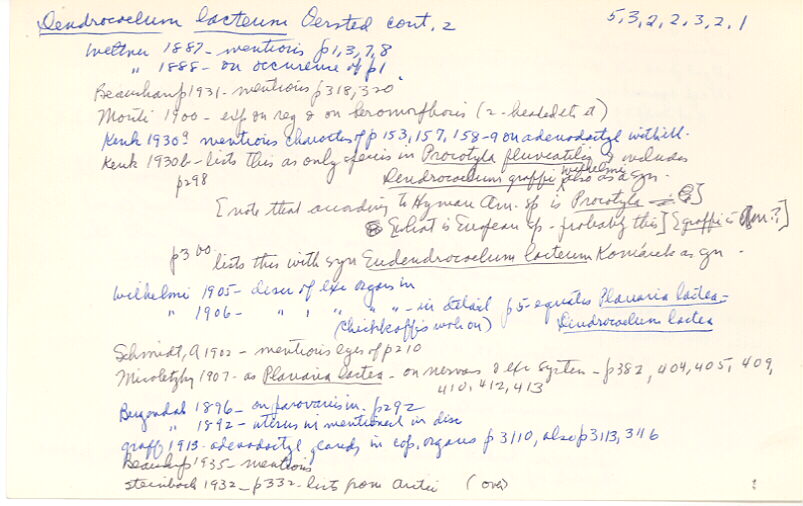 Dendrocoelum lacteum Oersted cont. 2 5,3,2,2,3,2,1
Weltner 1887 - mentions p1,3,7,8
" 1888 - on occurence of p1.
Beauchamp 1931 - mentions p318, 320
Monti 1900 - exp on reg & on heromorphosis (2-headed etc)
Kenk 1930a mentions characters of p 153, 157, 158-9 on adenodactyl with ill.
Kenk 1930b - lists this as only species in Procotyla fluviatilis & includes
p298 Dendrocoelum graffi wilhelmi also as a syn.
[note that according to Hyman Am. sp is Procotyla
what is European sp - probably this] [graffi is Am.?]
p300 lists this with syn Eudendrocoelum lacteum Komárek as syn.
Wilhelmi 1905 - discu of exc organs in
" 1906 - " " " " - in detail p5 - equates Planaria lactea =
(Chichkoff's work on) Dendrocoelum lactea
Schmidt, A 1902 - mentions eyes of p210
Micoletzky 1907 - as Planaria lactea - on nervous & exc system - p382, 404, 405, 409,
410, 412, 413
Bergendal 1896 - on parovaries in. p292
" 1892 - uterus in mentioned in disc
Graff 1913 - adenodactyl glands in cop. organs p3110, also p3113, 3116
Beauchamp 1935 - mentions
Steinbock 1932 - p332 - lists from Arctic (over)